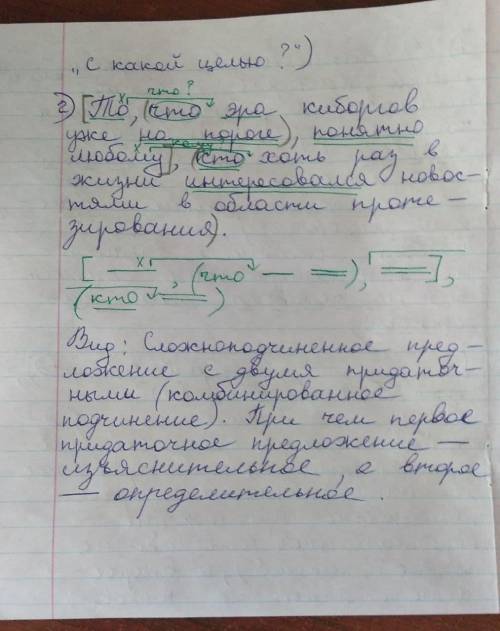 „с какой целью?")
что?
2) [То, (что эра киборгов
уже на пороге), понятно
любому], (кто хоть раз в
жизни интересовался новос-
тями в области проте-
зирования).
[ — , (что — = ), = ],
(кто = )
Вид: Сложноподчиненное пред-
ложение с двумя придаточ-
ными (комбинированное
подчинение). При чем первое
придаточное предложение —
изъяснительное, а второе
— определительное.